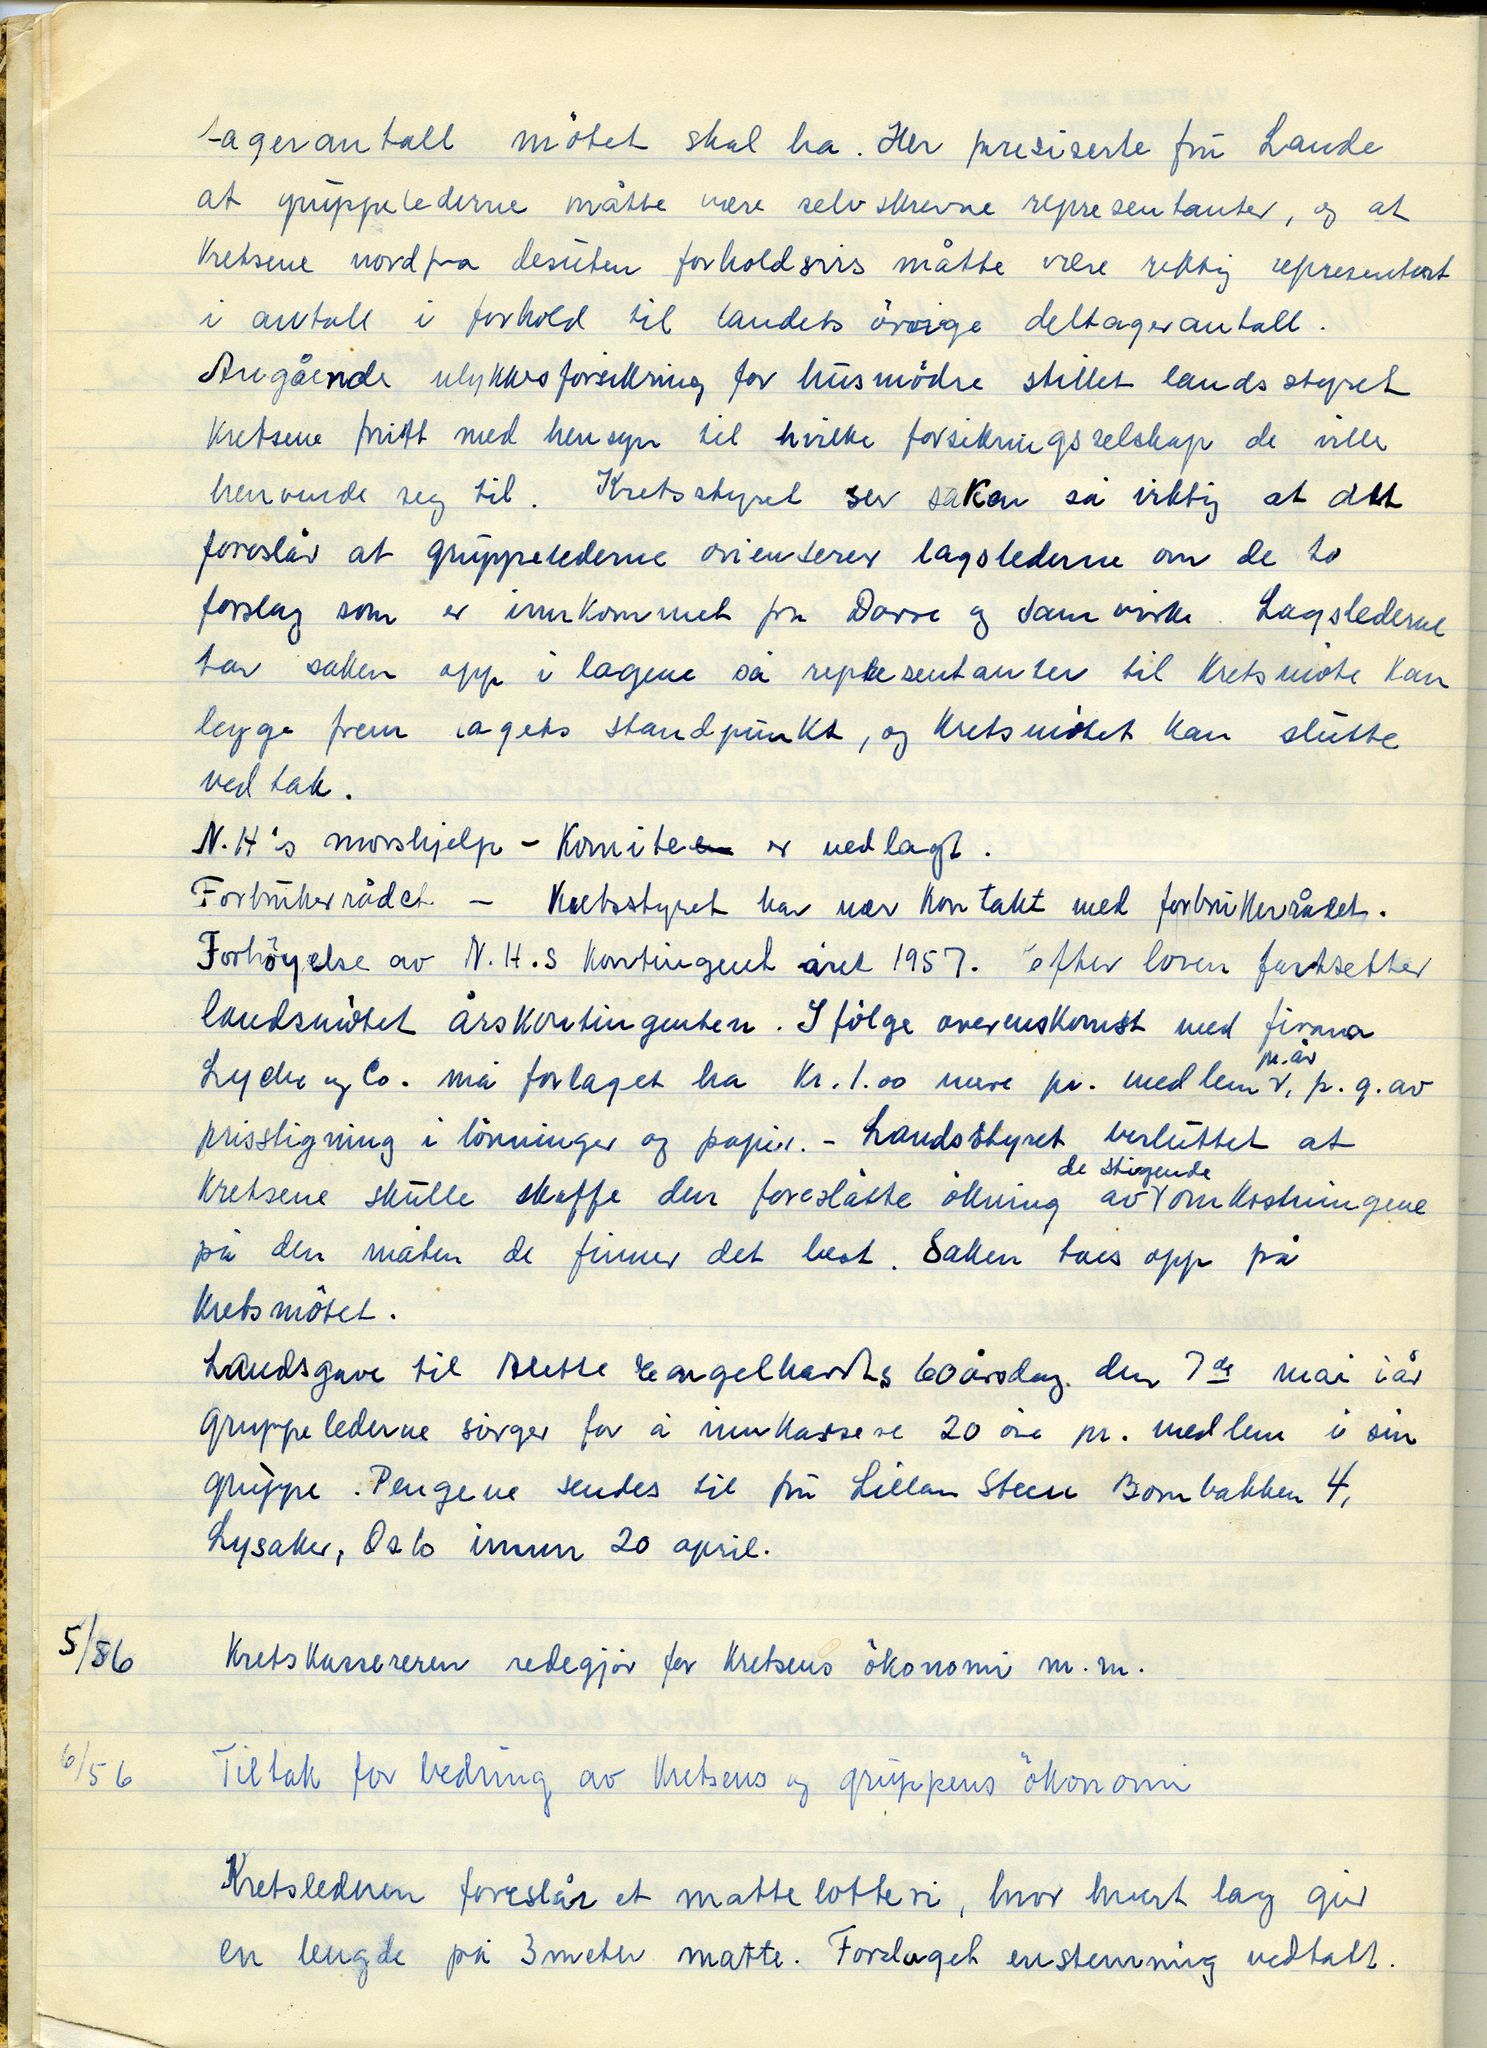 tagerantall møtet skal ha. Her presiserte fru Lande
at gruppelederne måtte være selvskrevne representanter, og at
Kretsene nordfra desuten forholdsvis måtte være riktig representert
i antall i forhold til landets øvrige deltagerantall.
Angående ulykkesforsikring for husmødre stillet landsstyret
Kretsene fritt med hensyn til hvilke forsikringsselskap de ville
henvende seg til. Kretsstyret ser saken så viktig at det
foreslår at gruppelederne orienterer lagslederne om de to
forslag som er innkommet fra Dovre og Samvirke. Lagslederne
tar saken opp i lagene så representanter til Kretsmøte kan
legge frem lagets standpunkt, og Kretsmøtet kan slutte
vedtak.
N.H's morshjelp - Komite er nedlagt.
Forbrukerrådet - Kretsstyret har nær kontakt med forbrukerrådet.
Forhøyelse av N.H.S kontingent året 1957. Efter loven fastsetter
landsmøtet årskontingenten. Ifølge overenskomst med firma
Lyche og Co. må forlaget ha Kr. 1.00 mere pr. medlem pr. år, p.g.av
prisstigning i lønninger og papir. - Landsstyret besluttet at
Kretsene skulle skaffe den foreslåtte økning av de stigende omkostningene
på den måten de finner det best. Saken taes opp på
Kretsmøtet.
Landsgave til Alette Engelharts 60årsdag den 7de mai i år
Gruppelederne sørger for å innkassere 20 øre pr. medlem i sin
gruppe. Pengene sendes til fru Lillan Steen Bombakken 4,
Lysaker, Oslo innen 20 april.
5/56 Kretskassereren redegjør for Kretsens økonomi m.m.
6/56 Tiltak for bedring av Kretsens og gruppens økonomi
Kretslederen foreslår et mattelotteri, hvor hvert lag gir
en lengde på 3 meter matte. Forslaget enstemmig vedtatt.